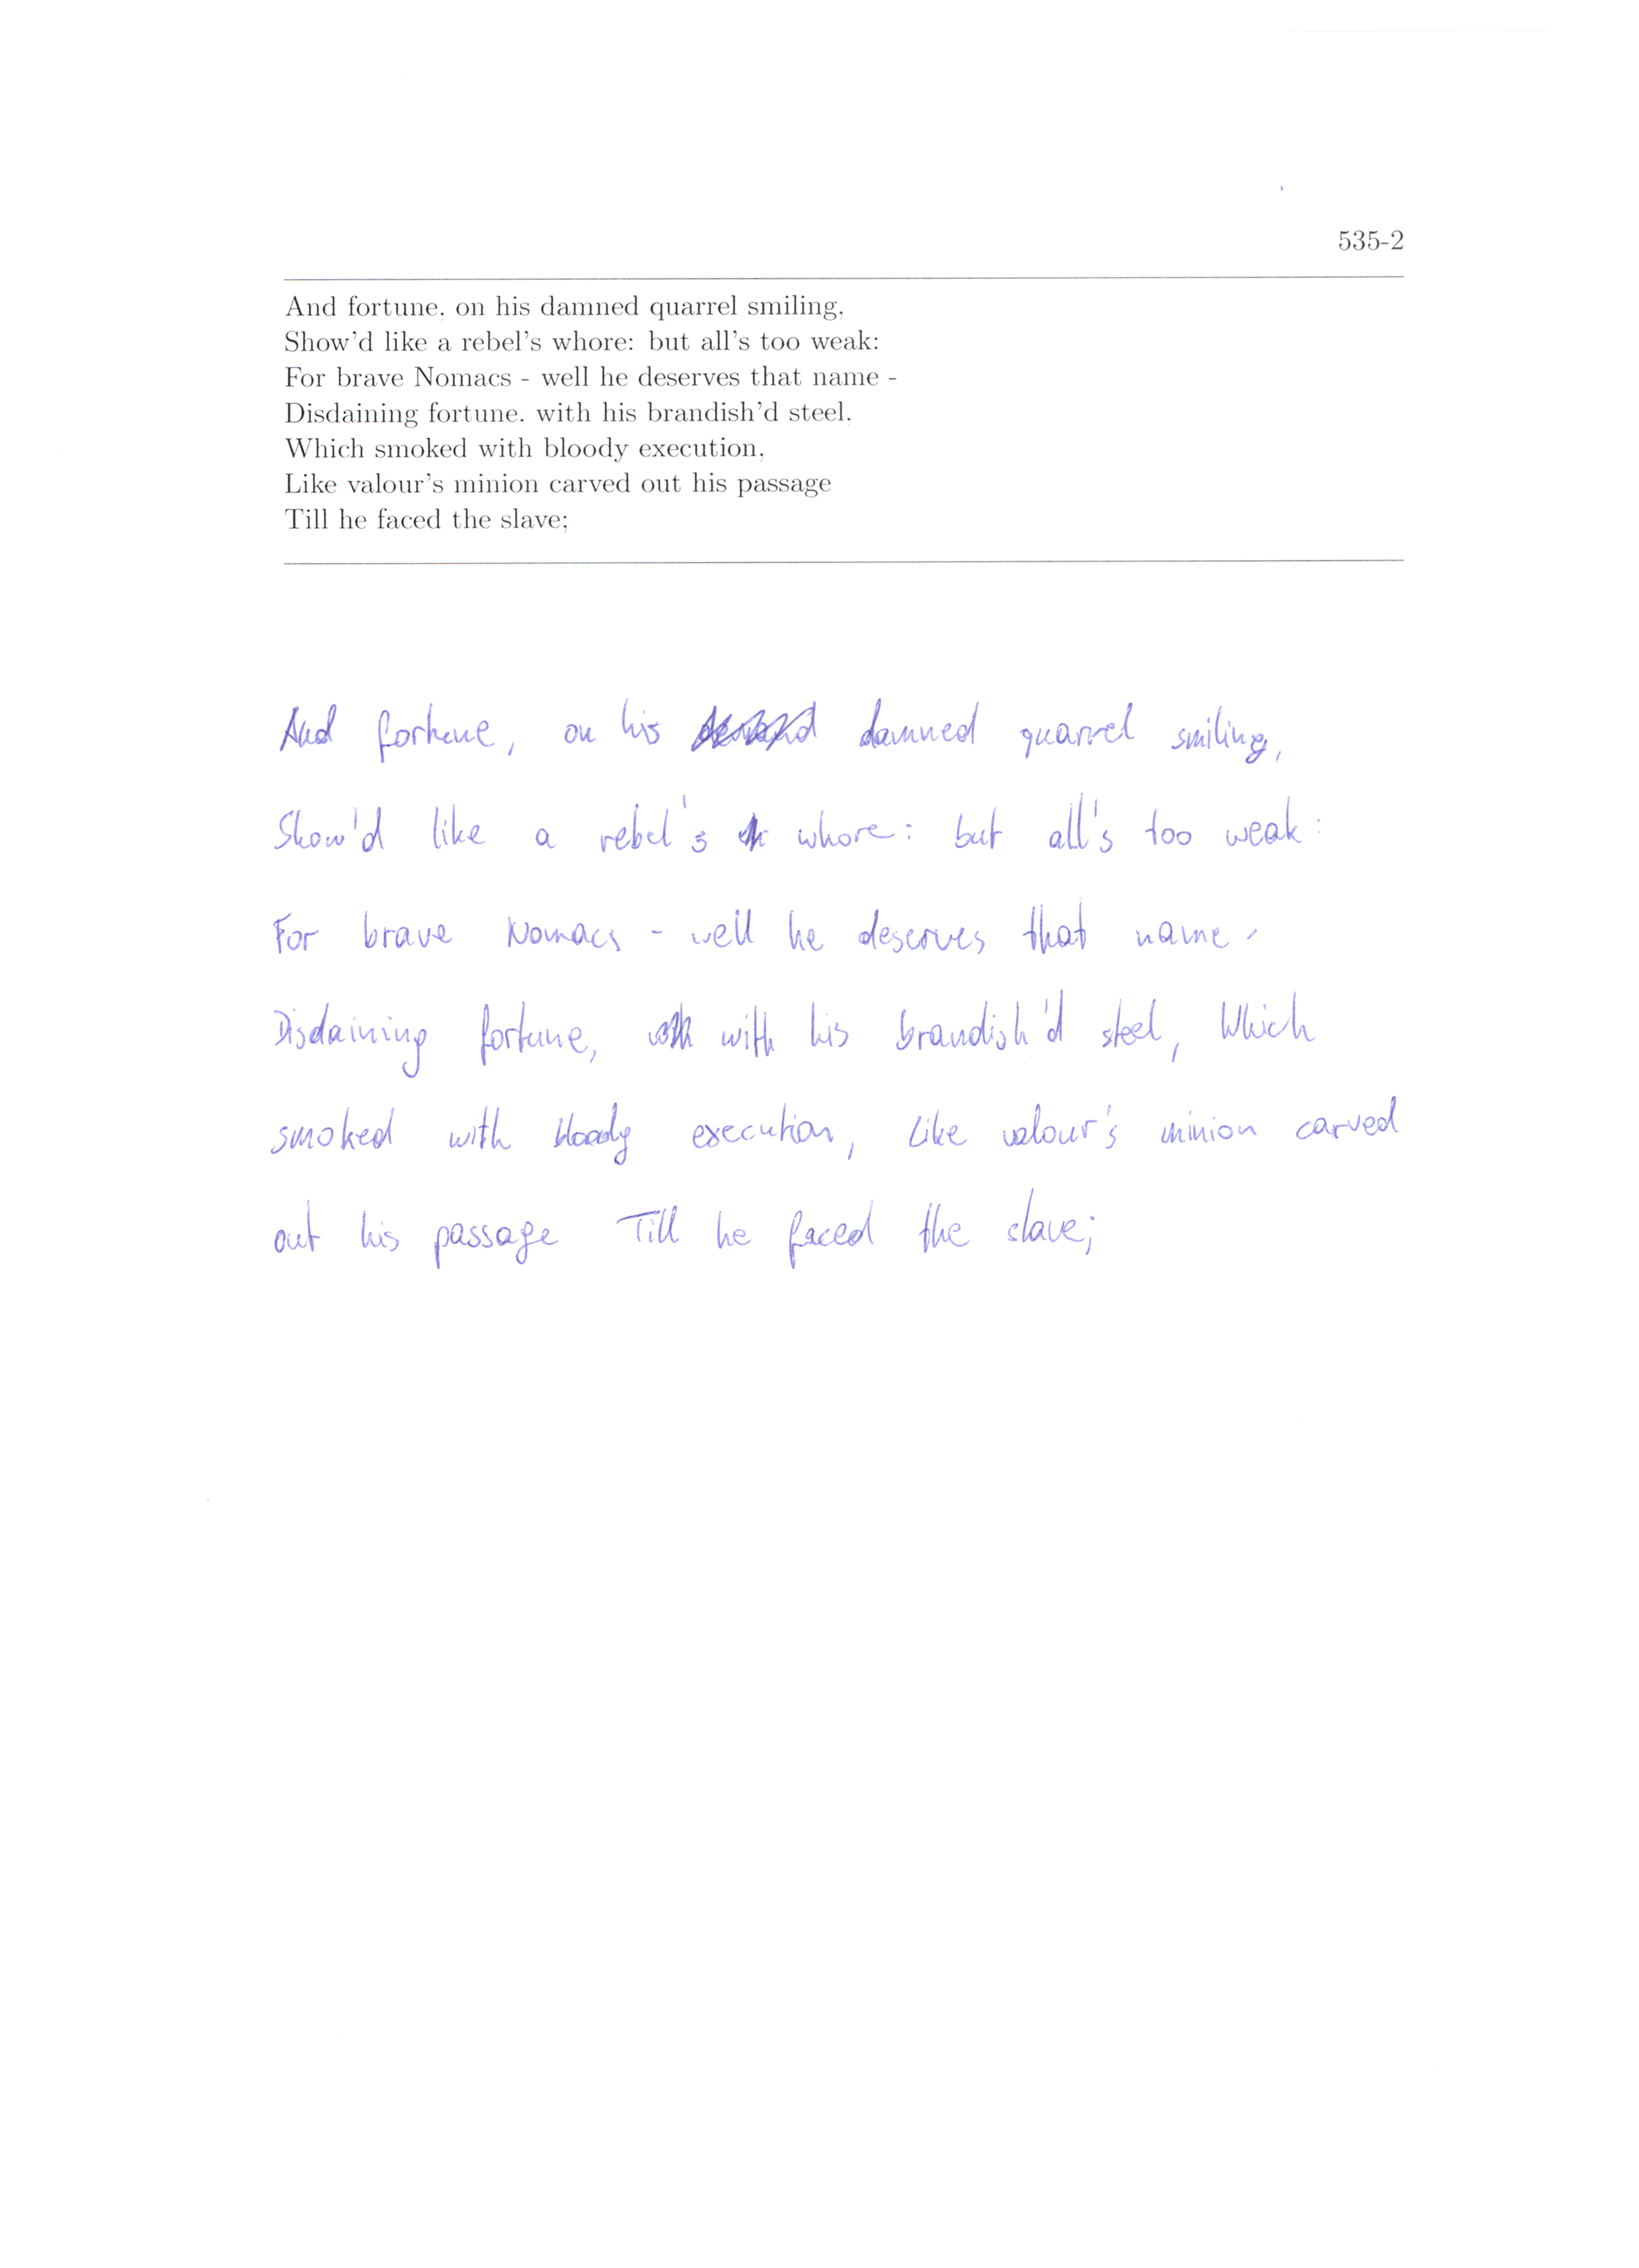 535-2
And fortune, on his damned quarrel smiling,
Show'd like a rebel's whore: but all's too weak:
For brave Nomacs - well he deserves that name -
Disdaining fortune, with his brandish'd steel,
Which smoked with bloody execution,
Like valour's minion carved out his passage
Till he faced the slave;
And fortune, on his damned quarrel smiling,
Show'd like a rebel's whore: but all's too weak:
For brave Nomacs - well he deserves that name -
Disdaining fortune, with his brandish'd steel, Which
smoked with bloody execution, Like valour's minion carved
out his passage Till he faced the slave;